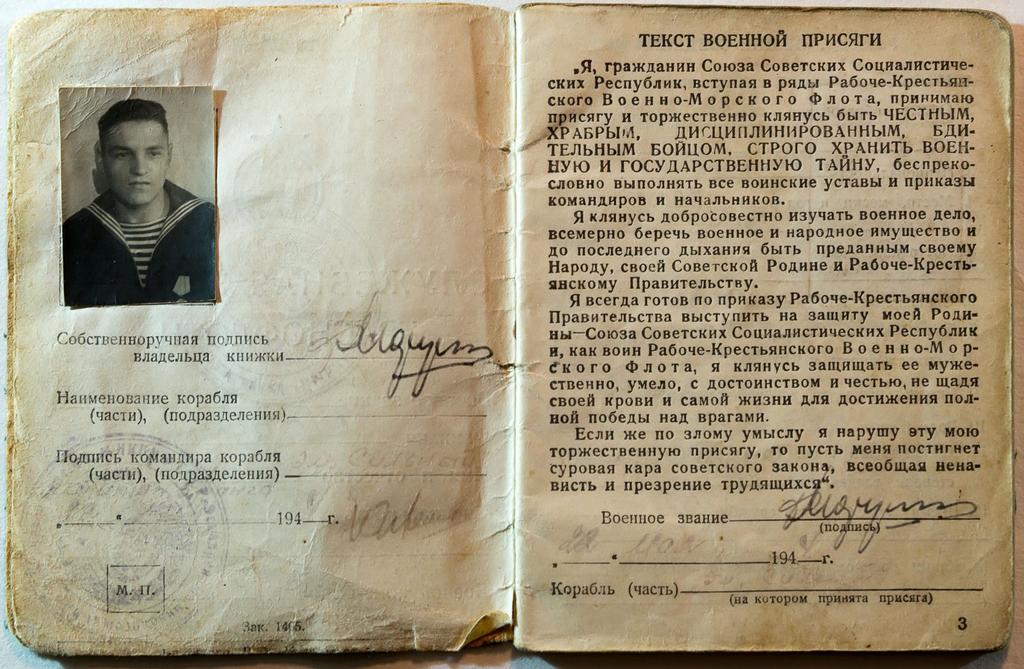 Собственноручная подпись
владельца книжки
Наименование корабля
(части), (подразделения)
Подпись командира корабля
(части), (подразделения)
„ “ 194 г.
М. П.
Зак. 1465.
ТЕКСТ ВОЕННОЙ ПРИСЯГИ
„Я, гражданин Союза Советских Социалистиче-
ских Республик, вступая в ряды Рабоче-Крестьян-
ского Военно-Морского Флота, принимаю
присягу и торжественно клянусь быть ЧЕСТНЫМ,
ХРАБРЫМ, ДИСЦИПЛИНИРОВАННЫМ, БДИ-
ТЕЛЬНЫМ БОЙЦОМ, СТРОГО ХРАНИТЬ ВОЕН-
НУЮ И ГОСУДАРСТВЕННУЮ ТАЙНУ, беспреко-
словно выполнять все воинские уставы и приказы
командиров и начальников.
Я клянусь добросовестно изучать военное дело,
всемерно беречь военное и народное имущество и
до последнего дыхания быть преданным своему
Народу, своей Советской Родине и Рабоче-Кресть-
янскому Правительству.
Я всегда готов по приказу Рабоче-Крестьянского
Правительства выступить на защиту моей Роди-
ны—Союза Советских Социалистических Республик
и, как воин Рабоче-Крестьянского Военно-Мор-
ского Флота, я клянусь защищать ее муже-
ственно, умело, с достоинством и честью, не щадя
своей крови и самой жизни для достижения пол-
ной победы над врагами.
Если же по злому умыслу я нарушу эту мою
торжественную присягу, то пусть меня постигнет
суровая кара советского закона, всеобщая нена-
висть и презрение трудящихся“.
Военное звание
(подпись)
„ “ 194 г.
Корабль (часть)
(на котором принята присяга)
3